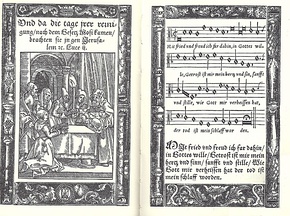 Und da die tage yrer reini-
gung/nach dem Gesetz Mosi kamen/
brachten sie jn gen Jerusa-
lem ꝛc. Luce ij.
Mit fried und freud ich far dahin, in Gottes wil-
le, Getrost ist mir mein hertz und sin, sanfft
und stille, wie Gott mir verheissen hat,
der tod ist mein schlaff wor den.
Mit fried und freud ich far dahin/
in Gottes wille/ Getrost ist mir mein
hertz und sinn/ sanfft und stille/ Wie
Gott mir verheissen hat der tod ist
mein schlaff worden.